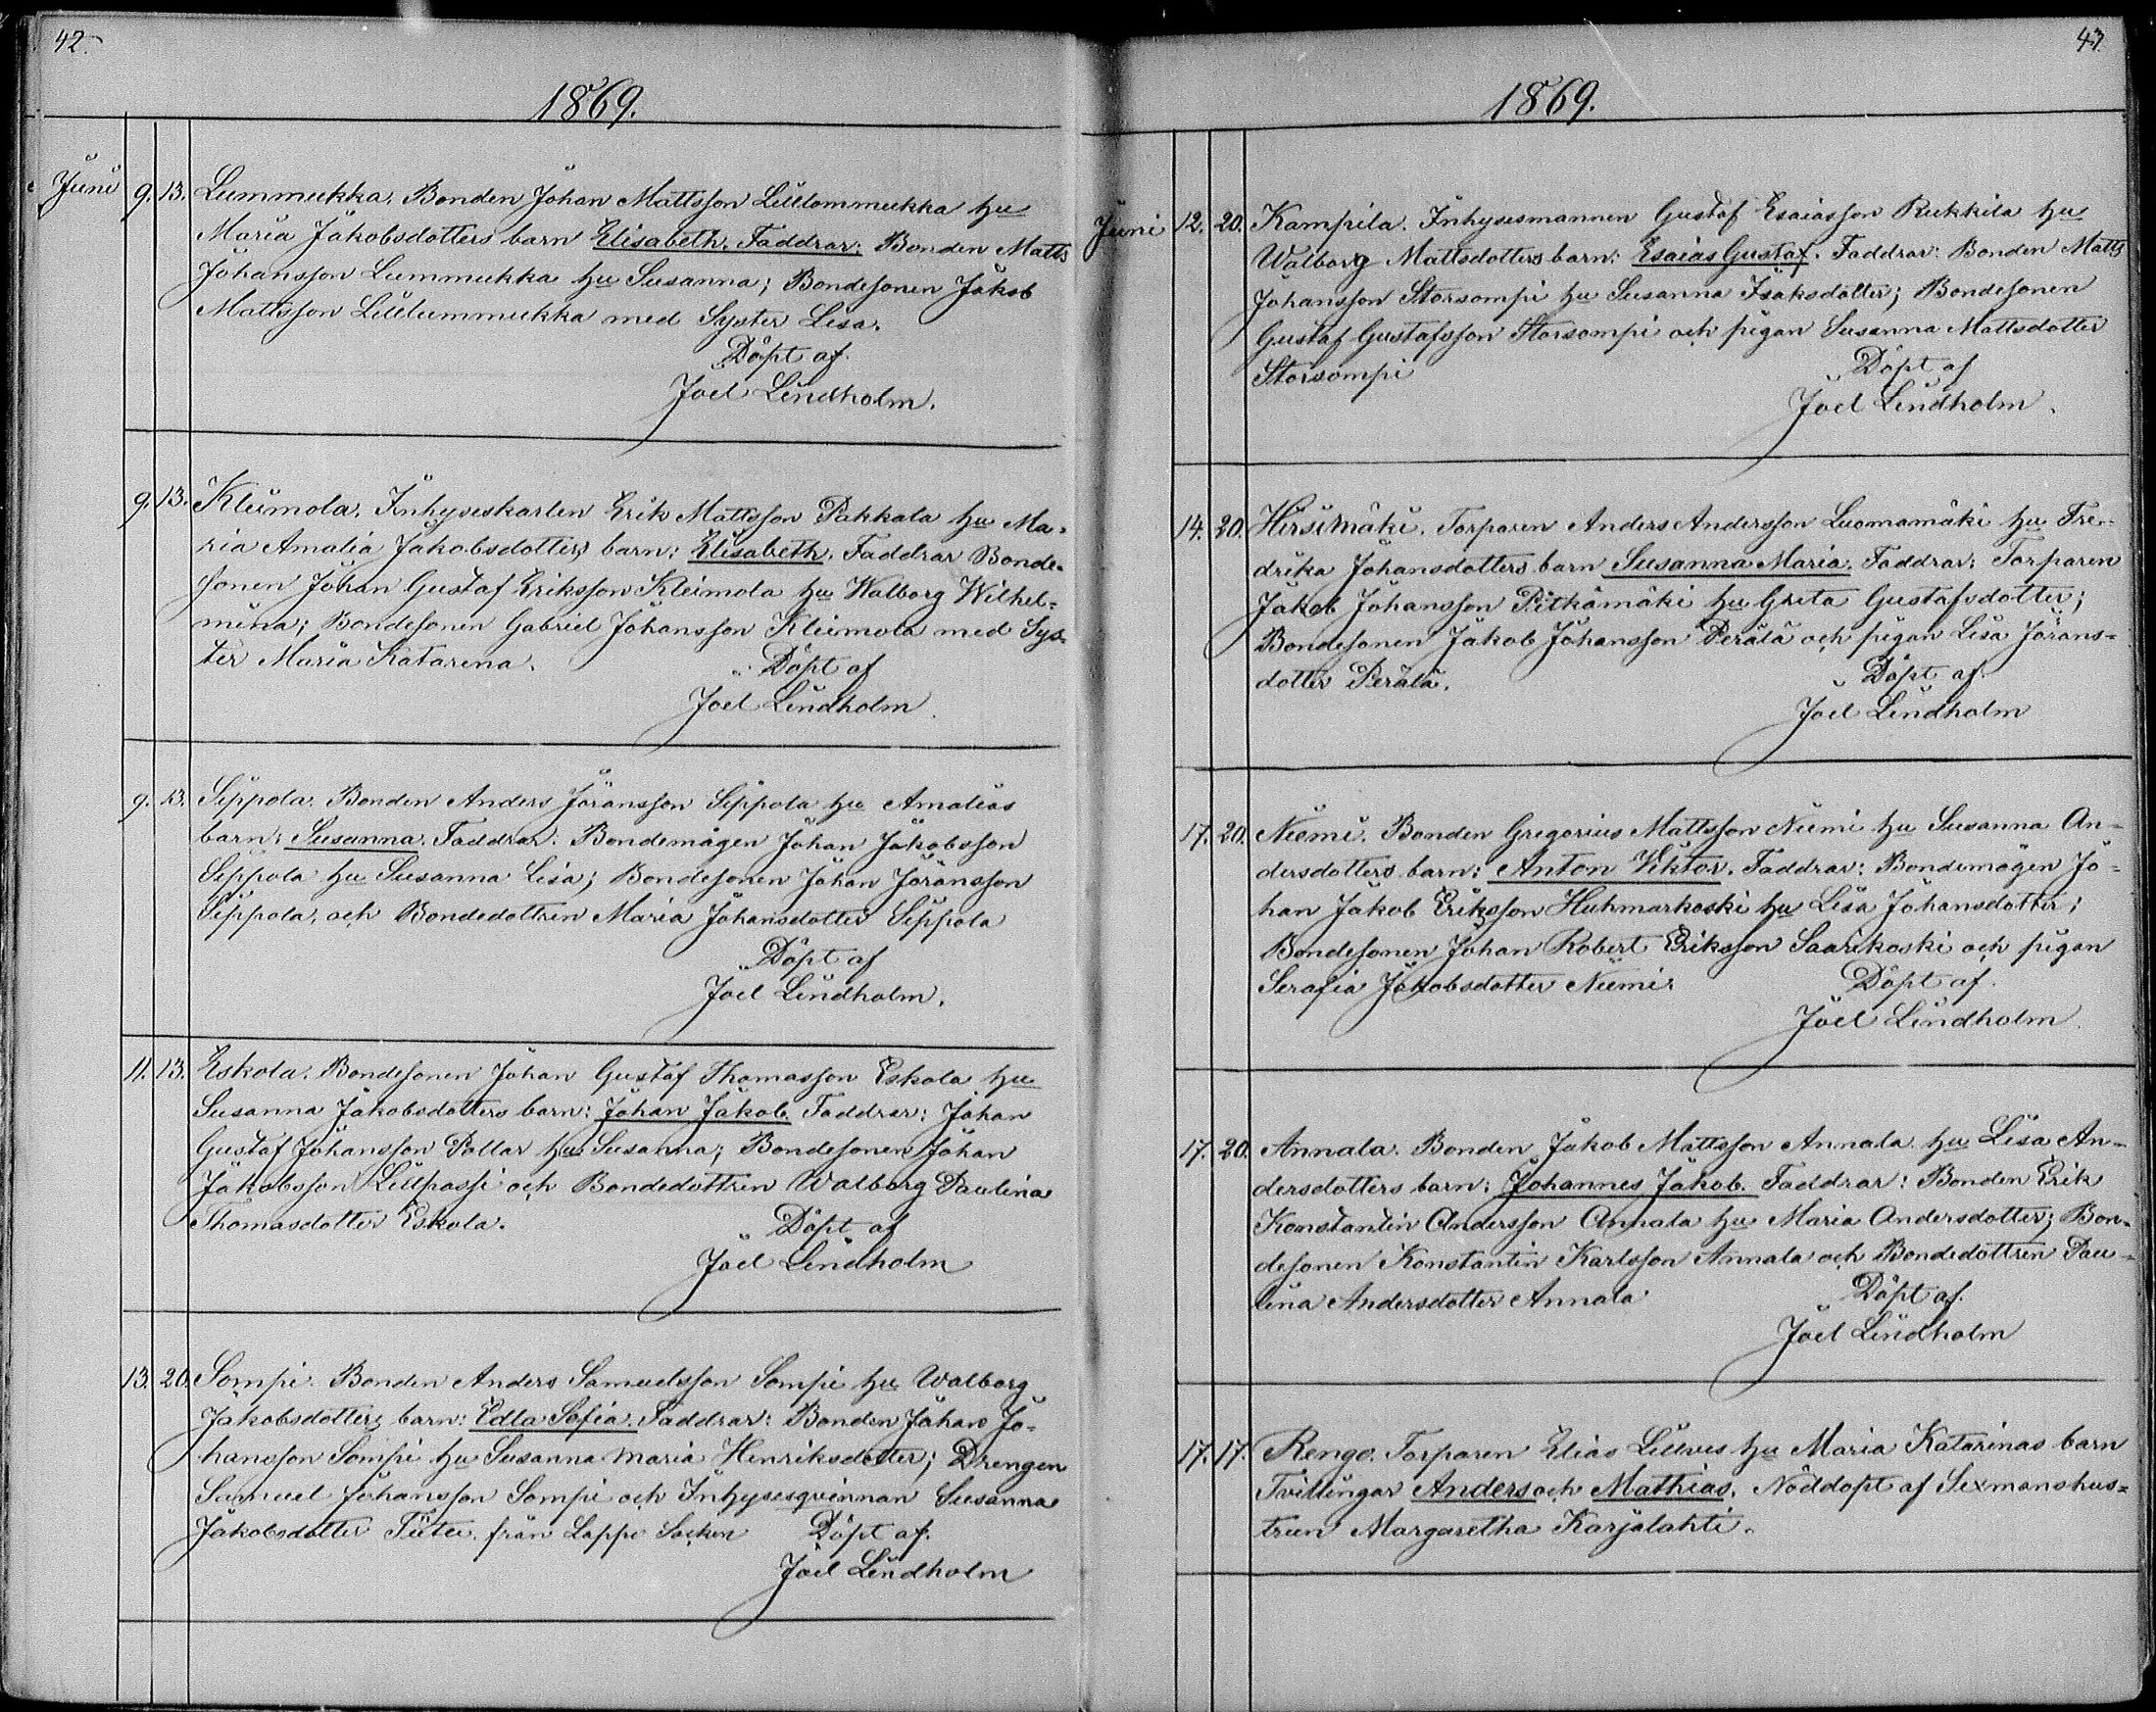 42.
1869.
Juni 9. 13. Lummukka. Bonden Johan Mattsson Lillommukka hu
Maria Jakobsdotters barn Elisabeth. Faddrar: Bonden Matts
Johansson Lummukka hu Susanna; Bondesonen Jakob
Mattsson Lillummukka med Syster Lisa.
Döpt af
Joel Lindholm.
9. 13. Kleimola. Inhyseskarlen Erik Mattsson Pakkala hu Ma=
ria Amalia Jakobsdotters barn: Elisabeth. Faddrar Bonde=
sonen Johan Gustaf Eriksson Kleimola hu Walborg Wilhel=
mina; Bondesonen Gabriel Johansson Kleimola med Sys=
ter Maria Katarina.
Döpt af
Joel Lindholm
9. 13. Sippola. Bonden Anders Jöransson Sippola hu Amalias
barn: Susanna. Faddrar: Bondemågen Johan Jakobsson
Sippola hu Susanna Lisa; Bondesonen Johan Jöransson
Sippola, och Bondedottren Maria Johansdotter Sippola
Döpt af
Joel Lindholm.
11. 13. Eskola. Bondesonen Johan Gustaf Thomasson Eskola hu
Susanna Jakobsdotters barn: Johan Jakob. Faddrar: Johan
Gustaf Johansson Pollar hu Susanna; Bondesonen Johan
Jakobsson Lillpassi och Bondedottren Walborg Paulina
Thomasdotter Eskola.
Döpt af
Joel Lindholm
13. 20. Sompi. Bonden Anders Samuelsson Sompi hu Walborg
Jakobsdotters barn: Edla Sofia. Faddrar: Bonden Johan Jo=
hansson Sompi hu Susanna Maria Henriksdotter; Drengen
Samuel Johansson Sompi och Inhysesqvinnan Susanna
Jakobsdotter från Lappo Socken Döpt af
Joel Lindholm
43.
1869.
Juni 12. 20. Kampila. Inhysesmannen Gustaf Esaiasson Rukkila hu
Walborg Mattsdotters barn: Esaias Gustaf. Faddrar: Bonden Matts
Johansson Storsompi hu Susanna Isaksdotter; Bondesonen
Gustaf Gustafsson Storsompi och pigan Susanna Mattsdotter
Storsompi
Döpt af
Joel Lindholm.
14. 20. Hirsimäki. Torparen Anders Andersson Luomamäki hu Fre=
drika Johansdotters barn Susanna Maria. Faddrar: Torparen
Jakob Johansson Pitkämäki hu Greta Gustafsdotter;
Bondesonen Jakob Johansson Perälä och pigan Lisa Jörans=
dotter Perälä.
Döpt af
Joel Lindholm
17. 20. Niemi. Bonden Gregorius Mattsson Niemi hu Susanna An=
dersdotters barn: Anton Viktor. Faddrar: Bondemågen Jo=
han Jakob Eriksson Huhmarkoski hu Lisa Johansdotter;
Bondesonen Johan Robert Eriksson Saarikoski och pigan
Serafia Jakobsdotter Niemi.
Döpt af
Joel Lindholm
17. 20. Annala. Bonden Jakob Mattsson Annala hu Lisa An=
dersdotters barn: Johannes Jakob. Faddrar: Bonden Erik
Konstantin Andersson Annala hu Maria Andersdotter; Bon=
desonen Konstantin Karlsson Annala och Bondedottren Pau=
lina Andersdotter Annala
Döpt af
Joel Lindholm
17. 17. Rengo. Torparen Elias hu Maria Katarinas barn
Tvillingar Anders och Mathias. Nöddöpt af Sexmanshus=
trun Margaretha Karjalahti.